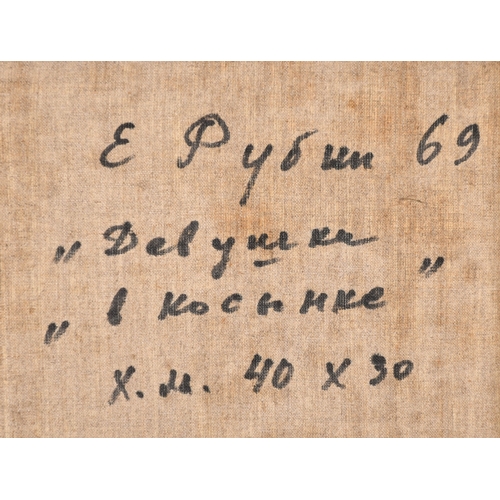 Е Рубин 69
„Девушка
„в косынке"
Х.м. 40 х 30